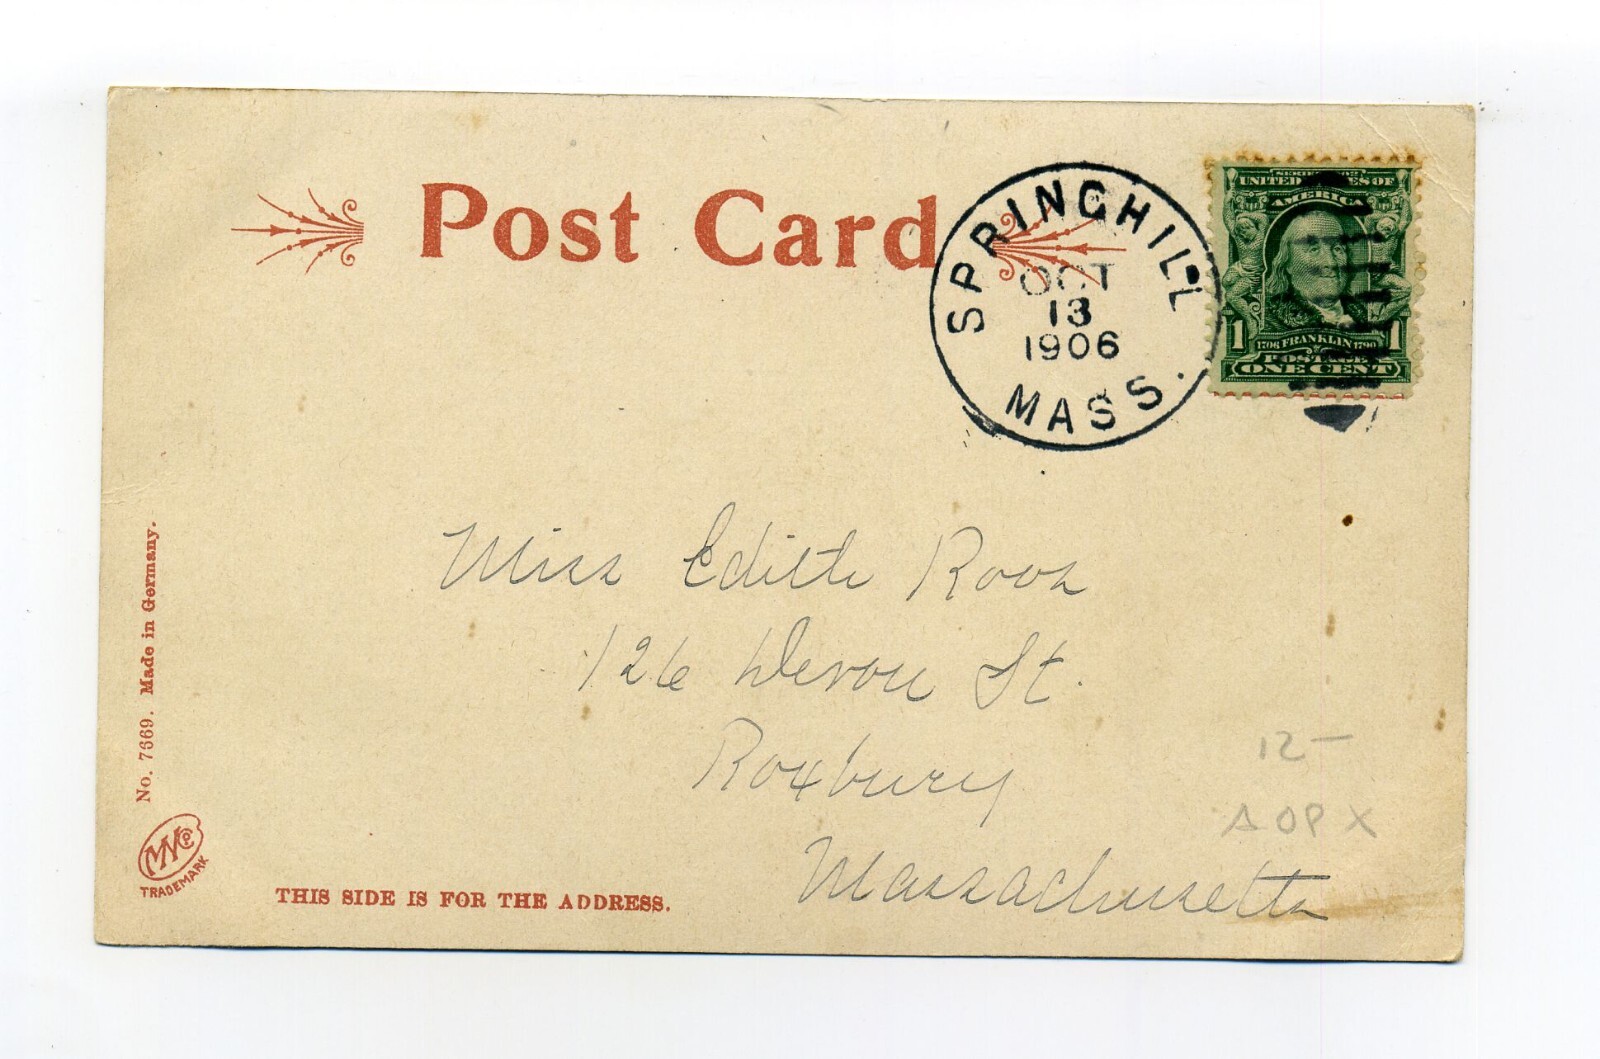 Post Card
SPRINGHILL
OCT
13
1906
MASS.
SERIES 1902
UNITED STATES OF
AMERICA
1 1
1706 FRANKLIN 1790
POSTAGE
ONE CENT
Miss Edith Roos
126 Devon St.
Roxbury
Massachusetts
12-
AOPX
No. 7669. Made in Germany.
MNCo
TRADEMARK
THIS SIDE IS FOR THE ADDRESS.